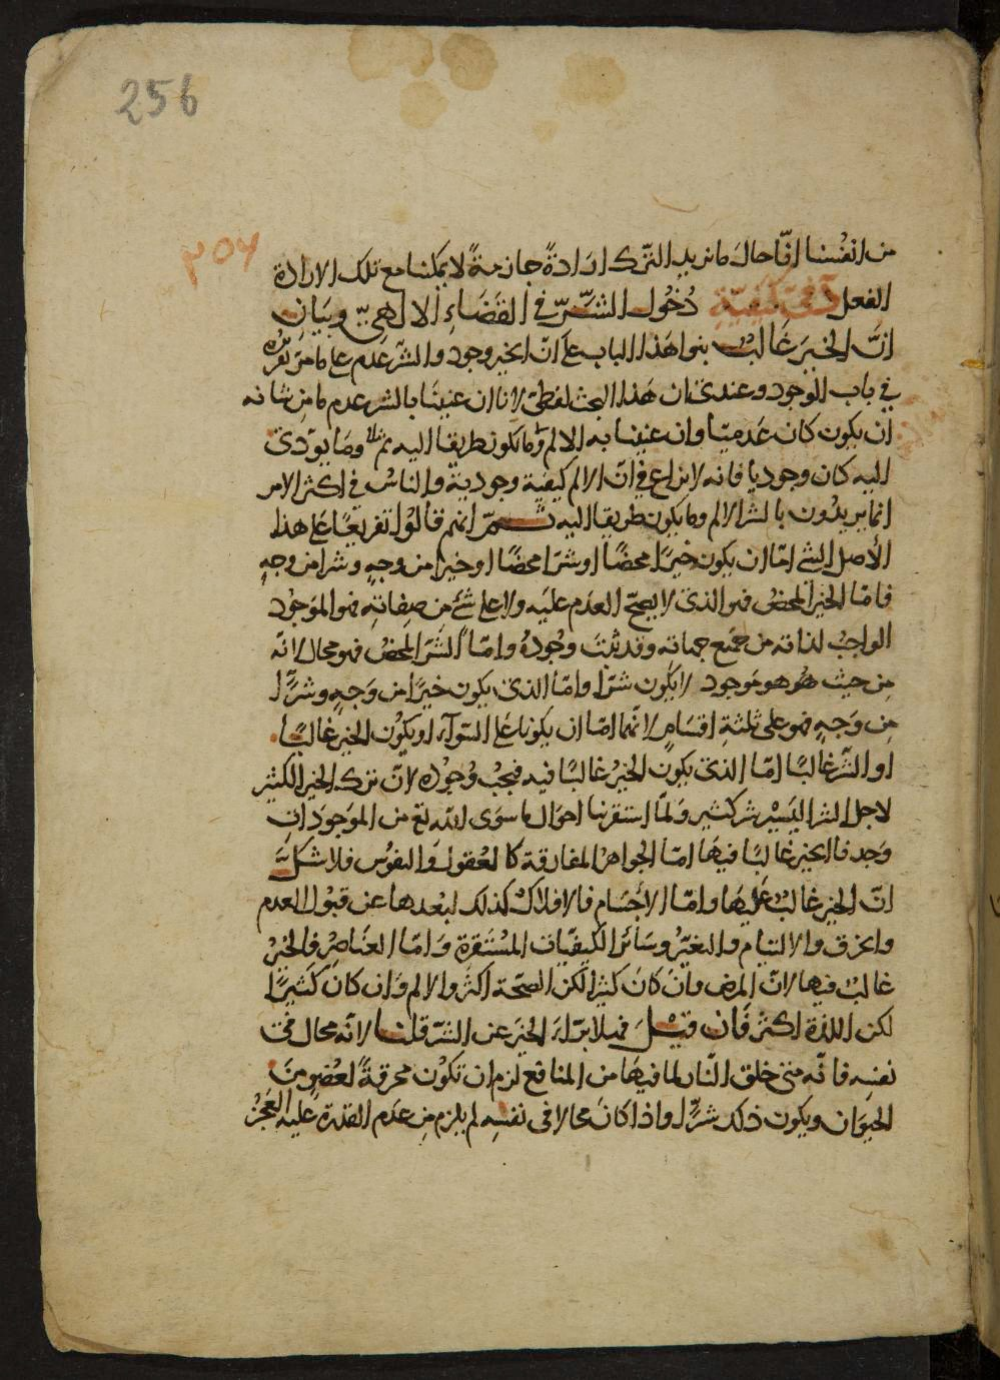 256
من انفسنا انّا حال ما نريد الترك ارادةً جازمةً لا يمكننا مع تلك الارادة
الفعل في كيفيّة دُخُول الشرّ في القضاءِ الالاهيّ وبيانِ
انّ الخيرَ غالبٌ بنوا هذا الباب على ان الخير وجود والشر عدم على ما مرّ تقريره
في باب الوجود وعندى ان هذا البحث لفظى لانا ان عنينا بالشر عدم ما من شانه
ان يكون كان عَدميّا وان عنينا به الالم وما يكون طريقا اليه وما يودى
اليه كان وجوديا فانه لا نزاع في انّ الالم كيفية وجودية والناسُ في اكثر الامر
انما يريدُون بالشر الالم وما يكون طريقا اليه ثمّ انهم قالوا تفريعًا على هذا
الأصل الشئ امّا ان يكون خيرًا محضًا او شرّا محضًا او خيرا من وجهٍ وشرا من وجهٍ
فامّا الخير المحض فهو الذى لا يصحّ العدم عليه ولا على شئ من صِفاتهِ فهو الموجُود
الواجبُ لذاته من جميع جهاته وقد ثبت وجُودهُ وامّا الشر المحض فهو محال لانّه
مِن حيث هُو هو موجود لا يكون شرّا وامّا الذى يكون خيرًا من وَجهٍ وشرًّا
مِن وَجهٍ فهو على ثلثةِ اقسَامٍ لانّهما امّا ان يكونا على السّوآء او يكُون الخير غالبًا
او الشّر غالبًا امّا الذى يكون الخيرُ غالبًا فيه فيجبُ وُجُوده لانّ ترك الخير الكثير
لاجل الشر اليَسير شر كثير وَلمّا استقرنا احوال ما سوَى الله تع من الموجَودَاتِ
وَجدنا الخير غالبًا فيها امّا الجواهر المفارقة كالعُقول والنفوُس فلا شكّ
انّ الخير غالبٌ عَليها وامّا الاجسَام فالافلاك كذلك لبُعدها عن قبُول العدم
والخرق والالتيام والتغيّر وسَائر الكيفيّات المُستَقرة وَامّا العنَاصرُ فالخيرُ
غالبٌ فيها لانّ المرض وان كان كثيرا لكن الصّحة اكثر والالم وَان كان كَثيرًا
لكن اللذة اكثر فَان قيْلَ فهلا برّاء الخير عن الشرّ قلنا لانّه محال فى
نفسِه فانّه متى خلق النّار لما فيها من المنافع لزم ان تكوُن محرقةً لعُضوٍ من
الحيوَان ويكون ذلك شرًّا واذا كانَ محالا فى نفسِه لم يلزم مِن عدَم القدرة عليه العجزُ